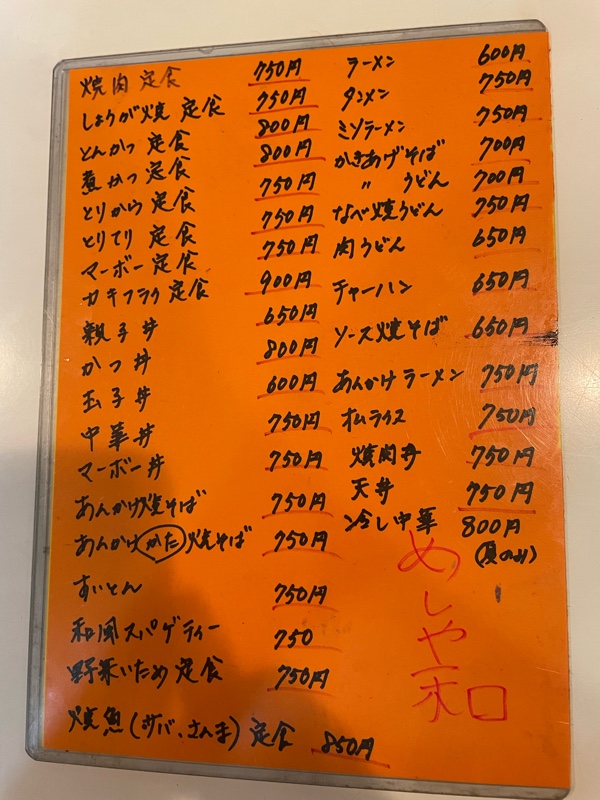 焼肉定食 750円
しょうが焼定食 750円
とんかつ定食 800円
煮かつ定食 800円
とりから定食 750円
とりてり定食 750円
マーボー定食 750円
カキフライ定食 900円
親子丼 650円
かつ丼 800円
玉子丼 600円
中華丼 750円
マーボー丼 750円
あんかけ焼そば 750円
あんかけかた焼そば 750円
すいとん 750円
和風スパゲティー 750
野菜いため定食 750円
焼魚(サバ、さんま)定食 850円
ラーメン 600円
タンメン 750円
ミソラーメン 750円
かきあげそば 700円
〃 うどん 700円
なべ焼うどん 750円
肉うどん 650円
チャーハン 650円
ソース焼そば 650円
あんかけラーメン 750円
オムライス 750円
焼肉丼 750円
天丼 750円
冷し中華 800円
(夏のみ)
めしや一和